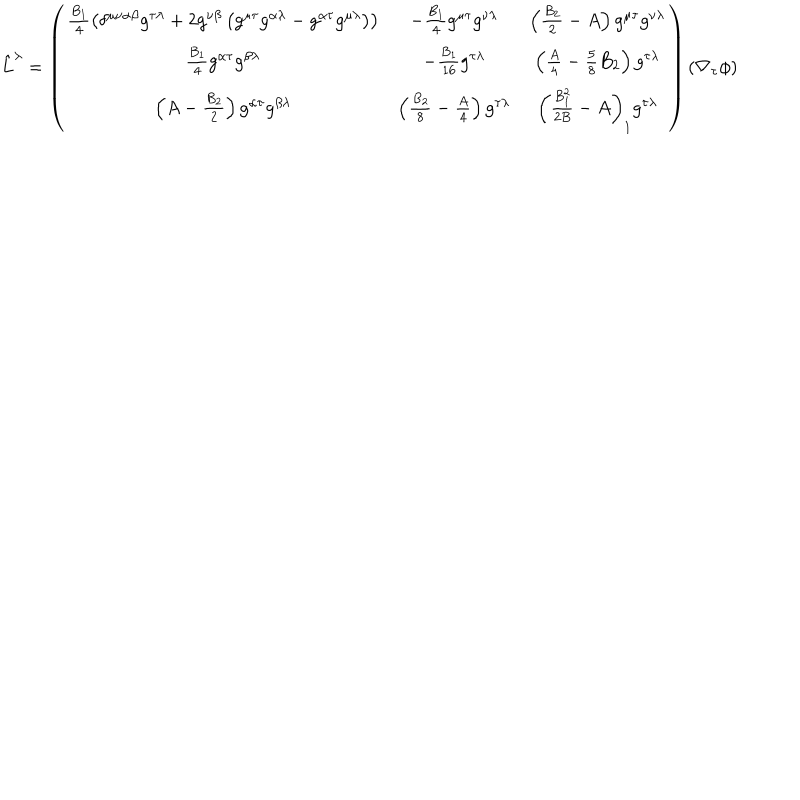 \hat{L}^{\lambda} = \left( \begin{array}{ccc} \frac{B_1}{4} \left( \delta^{\mu\nu\alpha\beta} g^{\tau\lambda} + 2 g^{\nu\beta} \left( g^{\mu\tau} g^{\alpha\lambda} - g^{\alpha\tau} g^{\mu\lambda} \right) \right) & -\frac{B_1}{4} g^{\mu\tau} g^{\nu\lambda} & \left( \frac{B_2}{2} - A \right) g^{\mu\tau} g^{\nu\lambda} \\ \frac{B_1}{4} g^{\alpha\tau} g^{\beta\lambda} & -\frac{B_1}{16} g^{\tau\lambda} & \left( \frac{A}{4} - \frac{5}{8} B_2 \right) g^{\tau\lambda} \\ \left( A - \frac{B_2}{2} \right) g^{\alpha\tau} g^{\beta\lambda} & \left( \frac{B_2}{8} - \frac{A}{4} \right) g^{\tau\lambda} & \left( \frac{B_1^2}{2B} - A \right)_1 g^{\tau\lambda} \end{array} \right) (\nabla_{\tau} \phi)